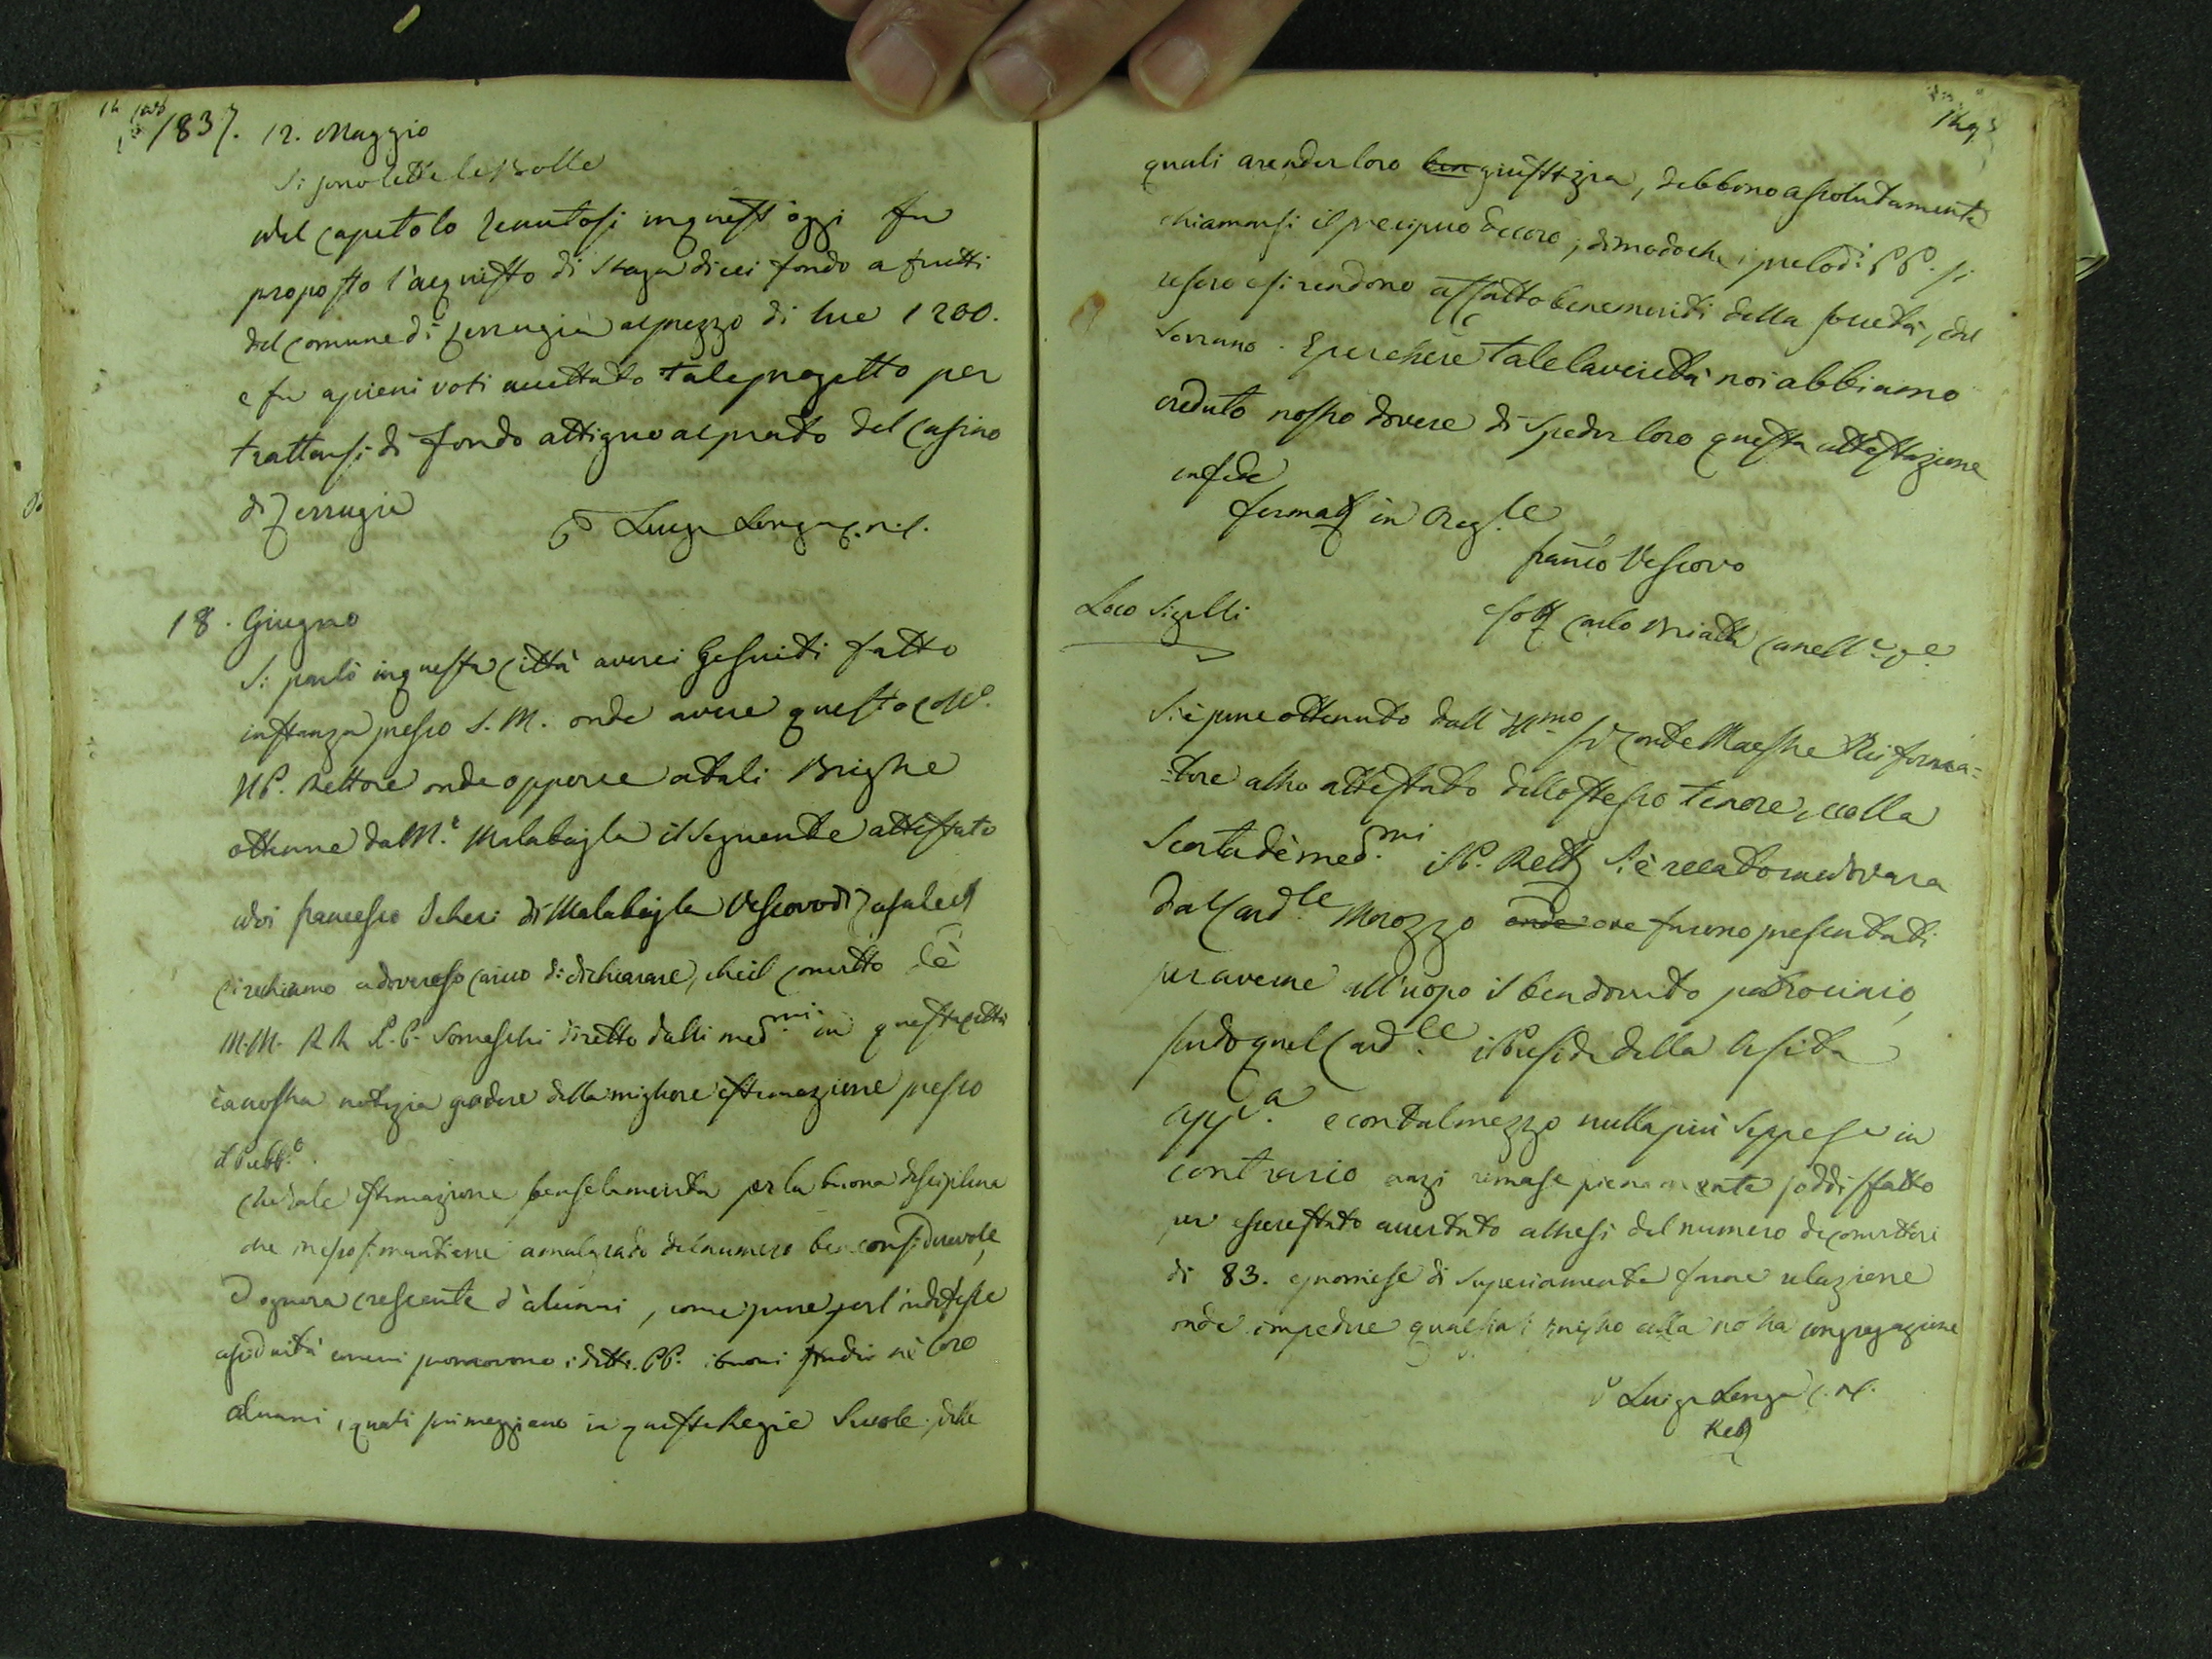 1837. 12. Maggio
Si sono lette le Bolle
Nel Capitolo tenutosi in quest'oggi fu
proposto l'acquisto di Staga dieci fondo a frutti
del Comune di Zerrugia al prezzo di lire 1200.
e fu a pieni voti accettato tale progetto per
trattarsi di fondo attiguo al prato del Casino
di Zerrugia
P Luigi Longa C.R.S.
18. Giugno
Si parlò in questa Città avere i Gesuiti fatto
instanza presso S. M. onde avere questo Coll.o
Il P. Rettore onde opporse a tali Brighe
ottenne da M.r Malabayla il seguente attestato
Noi Francesco Icheri di Malabayla Vescovo di Casale
Ci rechiamo a doveroso carico di dichiarare, che il Convitto de'
M.M. RR P.P. Somaschi diretto dalli med.mi in questa città
è a nostra notizia godere della migliore estimazione presso
il Pubb.o.
Che tale estimazione ben se la merita per la buona disciplina
che in esso si mantiene a malgrado del numero ben considerevole,
ed ognora crescente d'alunni, come pure per l'indefessa
assiduità con cui promovono i detti PP. i buoni studii ne' loro
alunni, i quali primeggiano in queste Regie Scuole, delle
quali a render loro ben giustizia, debbono assolutamente
chiamarsi il precipuo decoro; dimodoche i prelod.i PP. si
resero e si rendono affatto benemeriti della società, e del
Sovrano. E perche è tale la verità noi abbiamo
creduto nostro dovere di spedir loro questa attestazione
in fede
firmat in Orig.le
Fran.co Vescovo
Loco Sigilli
sott Carlo Miatta Cancell.e
Si è pure ottenuto dall'Ill.mo Sr Conte Maestre Riforma=
=tore altro attestato dello stesso tenore, e colla
Scorta de' med.mi il P. Rett. si è recato a Novara
dal Card.le Morozzo onde ove furono presentati
per averne all'uopo il ben dovuto patrocinio,
sendo quel Card.le il Preside della Visita
App.a e con tal mezzo nulla più seppesi in
contrario anzi rimase pienamente soddisfatto
per essere stato accertato altresì del numero de' convittori
di 83. e promise di superiormente farne relazione
onde impedire qualsiasi briga alla nostra congregazione
P Luigi Longa C.R.S.
Rett